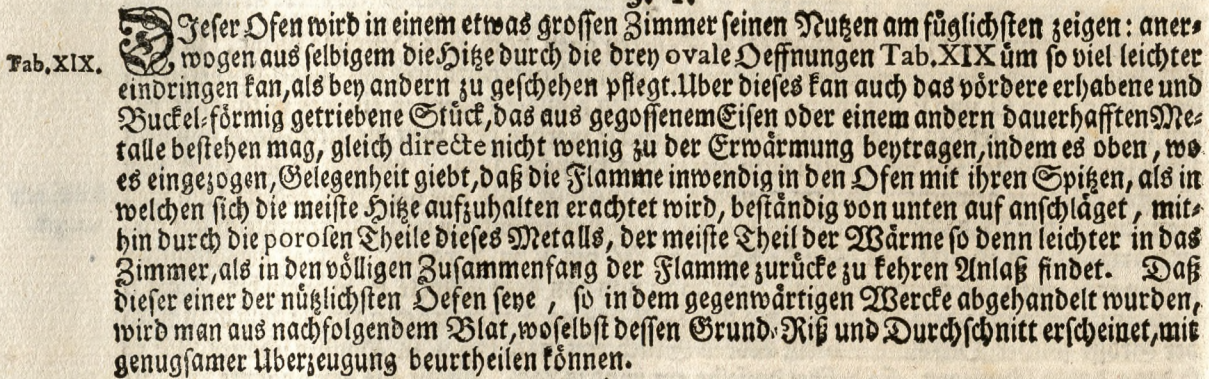 DJeser Ofen wird in einem etwas grossen Zimmer seinen Nutzen am füglichsten zeigen: aner-
Tab.XIX. wogen aus selbigem die Hitze durch die drey ovale Oeffnungen Tab.XIX üm so viel leichter
eindringen kan, als bey andern zu geschehen pflegt. Uber dieses kan auch das vördere erhabene und
Buckel-förmig getriebene Stück, das aus gegossenem Eisen oder einem andern dauerhafften Me-
talle bestehen mag, gleich directe nicht wenig zu der Erwärmung beytragen, indem es oben, wo
es eingezogen, Gelegenheit giebt, daß die Flamme inwendig in den Ofen mit ihren Spitzen, als in
welchen sich die meiste Hitze aufzuhalten erachtet wird, beständig von unten auf anschläget, mit-
hin durch die porosen Theile dieses Metalls, der meiste Theil der Wärme so denn leichter in das
Zimmer, als in den völligen Zusammenfang der Flamme zurücke zu kehren Anlaß findet. Daß
dieser einer der nützlichsten Oefen seye, so in dem gegenwärtigen Wercke abgehandelt wurden,
wird man aus nachfolgendem Blat, woselbst dessen Grund-Riß und Durchschnitt erscheinet, mit
genugsamer Uberzeugung beurtheilen können.